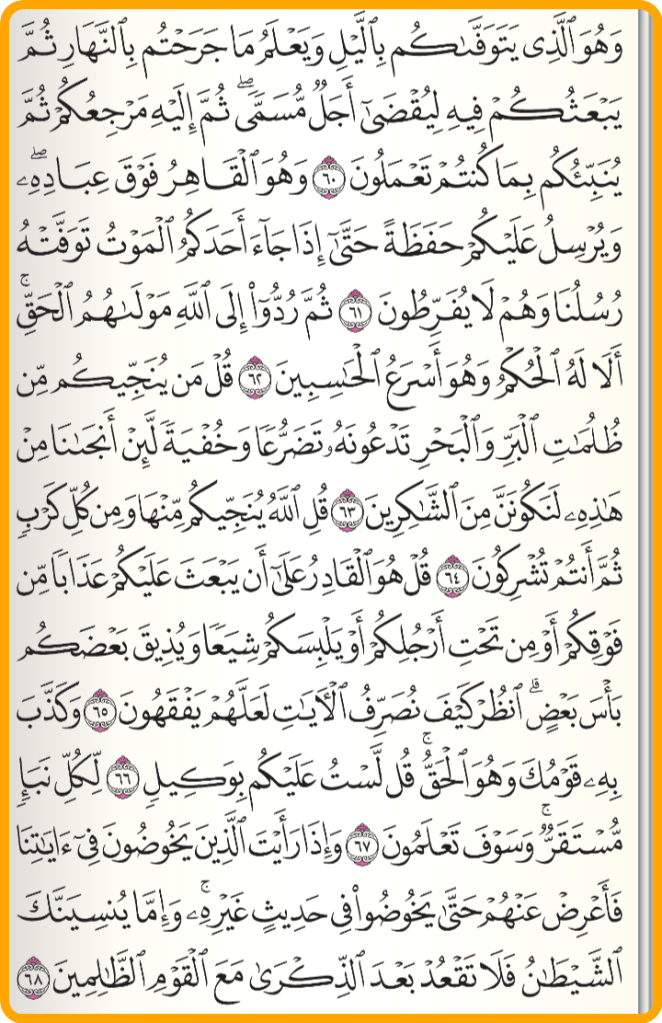 وَهُوَ ٱلَّذِى يَتَوَفَّىٰكُم بِٱلَّيْلِ وَيَعْلَمُ مَا جَرَحْتُم بِٱلنَّهَارِ ثُمَّ
يَبْعَثُكُمْ فِيهِ لِيُقْضَىٰٓ أَجَلٌ مُّسَمًّى ۖ ثُمَّ إِلَيْهِ مَرْجِعُكُمْ ثُمَّ
يُنَبِّئُكُم بِمَا كُنتُمْ تَعْمَلُونَ ٦٠ وَهُوَ ٱلْقَاهِرُ فَوْقَ عِبَادِهِۦ ۖ
وَيُرْسِلُ عَلَيْكُمْ حَفَظَةً حَتَّىٰٓ إِذَا جَآءَ أَحَدَكُمُ ٱلْمَوْتُ تَوَفَّتْهُ
رُسُلُنَا وَهُمْ لَا يُفَرِّطُونَ ٦١ ثُمَّ رُدُّوٓا۟ إِلَى ٱللَّهِ مَوْلَىٰهُمُ ٱلْحَقِّ ۚ
أَلَا لَهُ ٱلْحُكْمُ وَهُوَ أَسْرَعُ ٱلْحَٰسِبِينَ ٦٢ قُلْ مَن يُنَجِّيكُم مِّن
ظُلُمَٰتِ ٱلْبَرِّ وَٱلْبَحْرِ تَدْعُونَهُۥ تَضَرُّعًا وَخُفْيَةً لَّئِنْ أَنجَىٰنَا مِنْ
هَٰذِهِۦ لَنَكُونَنَّ مِنَ ٱلشَّٰكِرِينَ ٦٣ قُلِ ٱللَّهُ يُنَجِّيكُم مِّنْهَا وَمِن كُلِّ كَرْبٍ
ثُمَّ أَنتُمْ تُشْرِكُونَ ٦٤ قُلْ هُوَ ٱلْقَادِرُ عَلَىٰٓ أَن يَبْعَثَ عَلَيْكُمْ عَذَابًا مِّن
فَوْقِكُمْ أَوْ مِن تَحْتِ أَرْجُلِكُمْ أَوْ يَلْبِسَكُمْ شِيَعًا وَيُذِيقَ بَعْضَكُم
بَأْسَ بَعْضٍ ۗ ٱنظُرْ كَيْفَ نُصَرِّفُ ٱلْءَايَٰتِ لَعَلَّهُمْ يَفْقَهُونَ ٦٥ وَكَذَّبَ
بِهِۦ قَوْمُكَ وَهُوَ ٱلْحَقُّ ۚ قُل لَّسْتُ عَلَيْكُم بِوَكِيلٍ ٦٦ لِّكُلِّ نَبَإٍ
مُّسْتَقَرٌّ ۚ وَسَوْفَ تَعْلَمُونَ ٦٧ وَإِذَا رَأَيْتَ ٱلَّذِينَ يَخُوضُونَ فِىٓ ءَايَٰتِنَا
فَأَعْرِضْ عَنْهُمْ حَتَّىٰ يَخُوضُوا۟ فِى حَدِيثٍ غَيْرِهِۦ ۚ وَإِمَّا يُنسِيَنَّكَ
ٱلشَّيْطَٰنُ فَلَا تَقْعُدْ بَعْدَ ٱلذِّكْرَىٰ مَعَ ٱلْقَوْمِ ٱلظَّٰلِمِينَ ٦٨